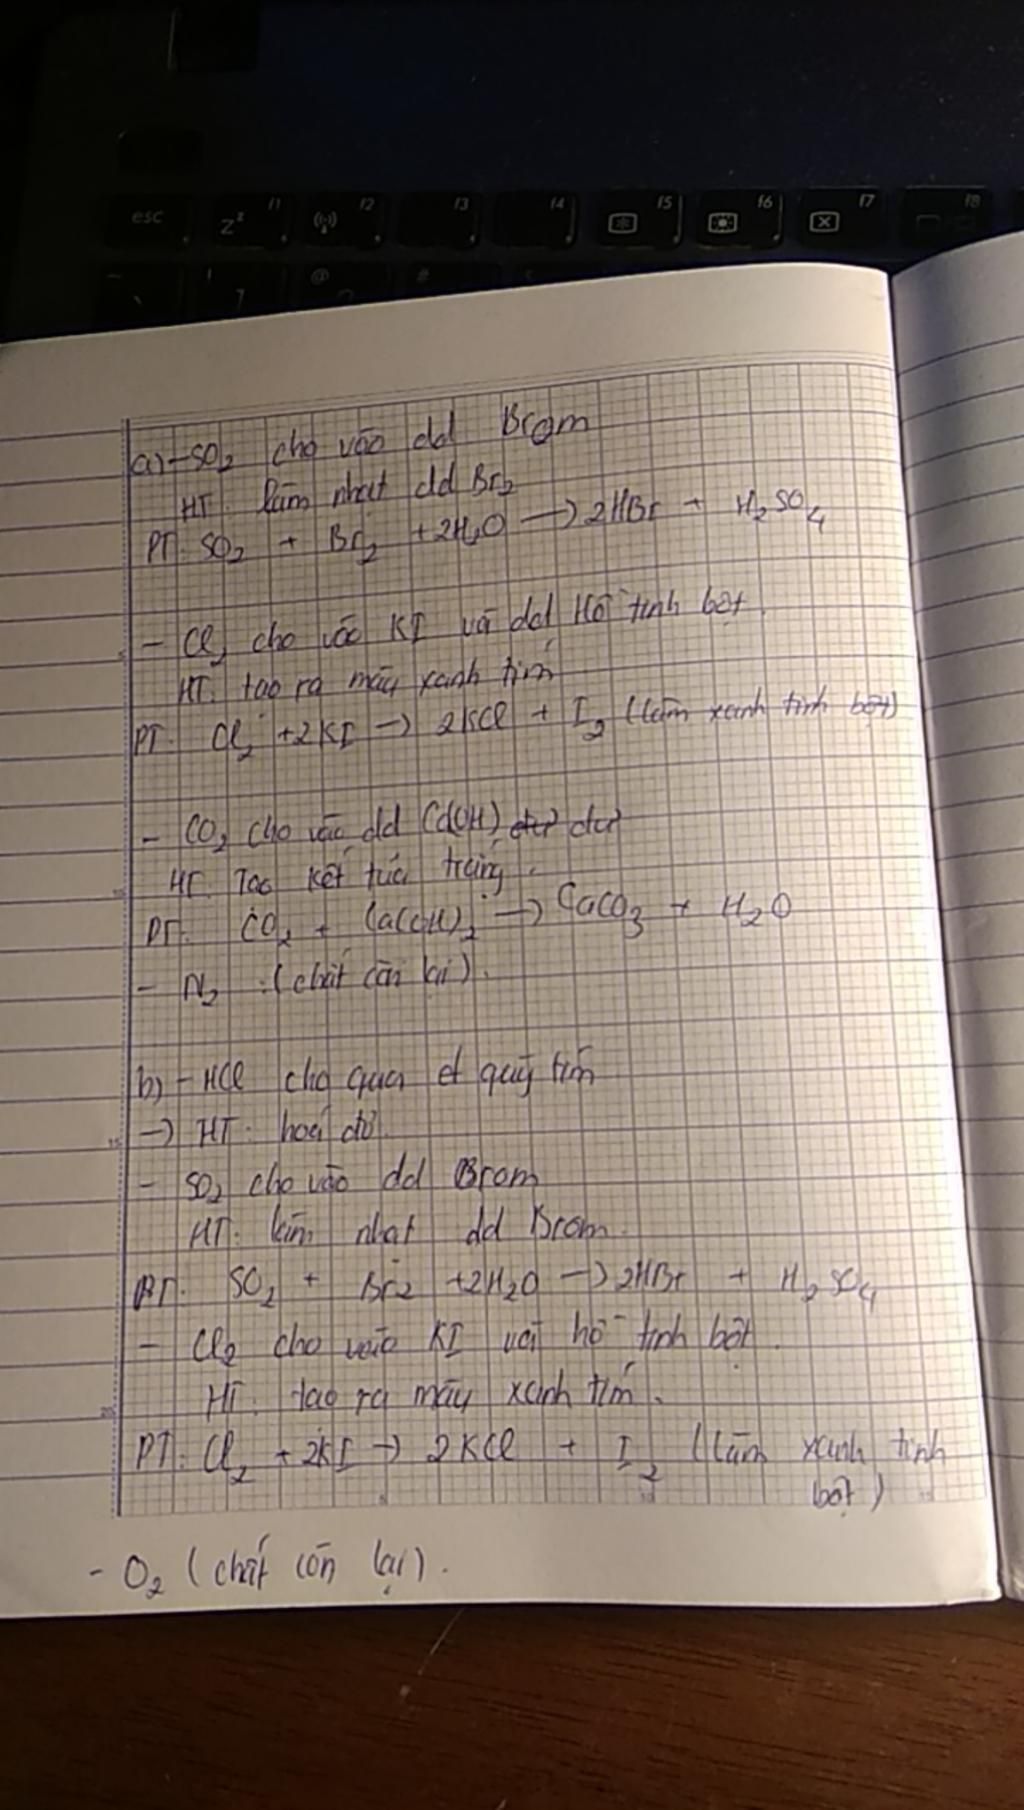 esc
f1
f2
f3
f4
f5
f6
f7
f8
a) - SO2 cho vào dd Brom
HT: làm nhạt dd Br2
PT: SO2 + Br2 + 2H2O → 2HBr + H2SO4
- Cl2 cho vào KI và dd Hồ tinh bột
HT: tạo ra màu xanh tím
PT: Cl2 + 2KI → 2KCl + I2 (làm xanh tinh bột)
- CO2 cho vào dd Ca(OH) dư
HT: Tạo kết tủa trắng.
PT: CO2 + Ca(OH)2 → CaCO3 + H2O
- N2 : (chất còn lại).
b) - HCl cho qua quỳ tím
→ HT: hoá đỏ.
- SO2 cho vào dd Brom
HT: làm nhạt dd Brom.
PT: SO2 + Br2 + 2H2O → 2HBr + H2SO4
- Cl2 cho vào KI với hồ tinh bột.
HT: tạo ra màu xanh tím.
PT: Cl2 + 2KI → 2KCl + I2 (làm xanh tinh
bột)
- O2 (chất còn lại).